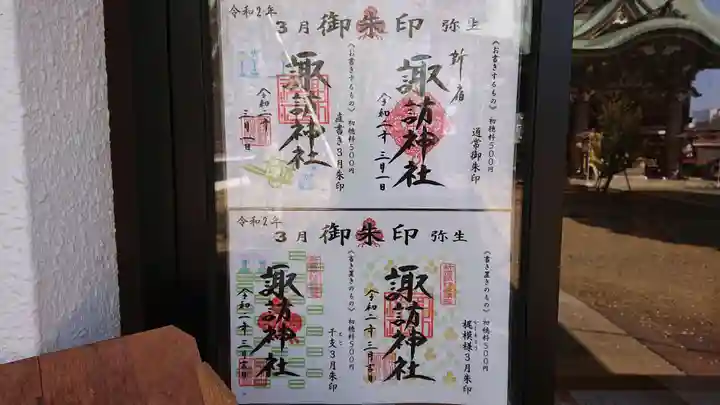 令和2年
3月 御朱印 弥生
《お書きするもの》初穂料500円
通常御朱印
新宿
諏訪神社
令和二年 三月一日
《お書きするもの》初穂料500円
直書き3月朱印
諏訪神社
令和二年
三月一日
令和2年
3月 御朱印 弥生
《書き置きのもの》初穂料500円
梶模様3月朱印
諏訪神社
令和二年 三月吉日
《書き置きのもの》初穂料500円
干支3月朱印
諏訪神社
令和二年 三月吉日